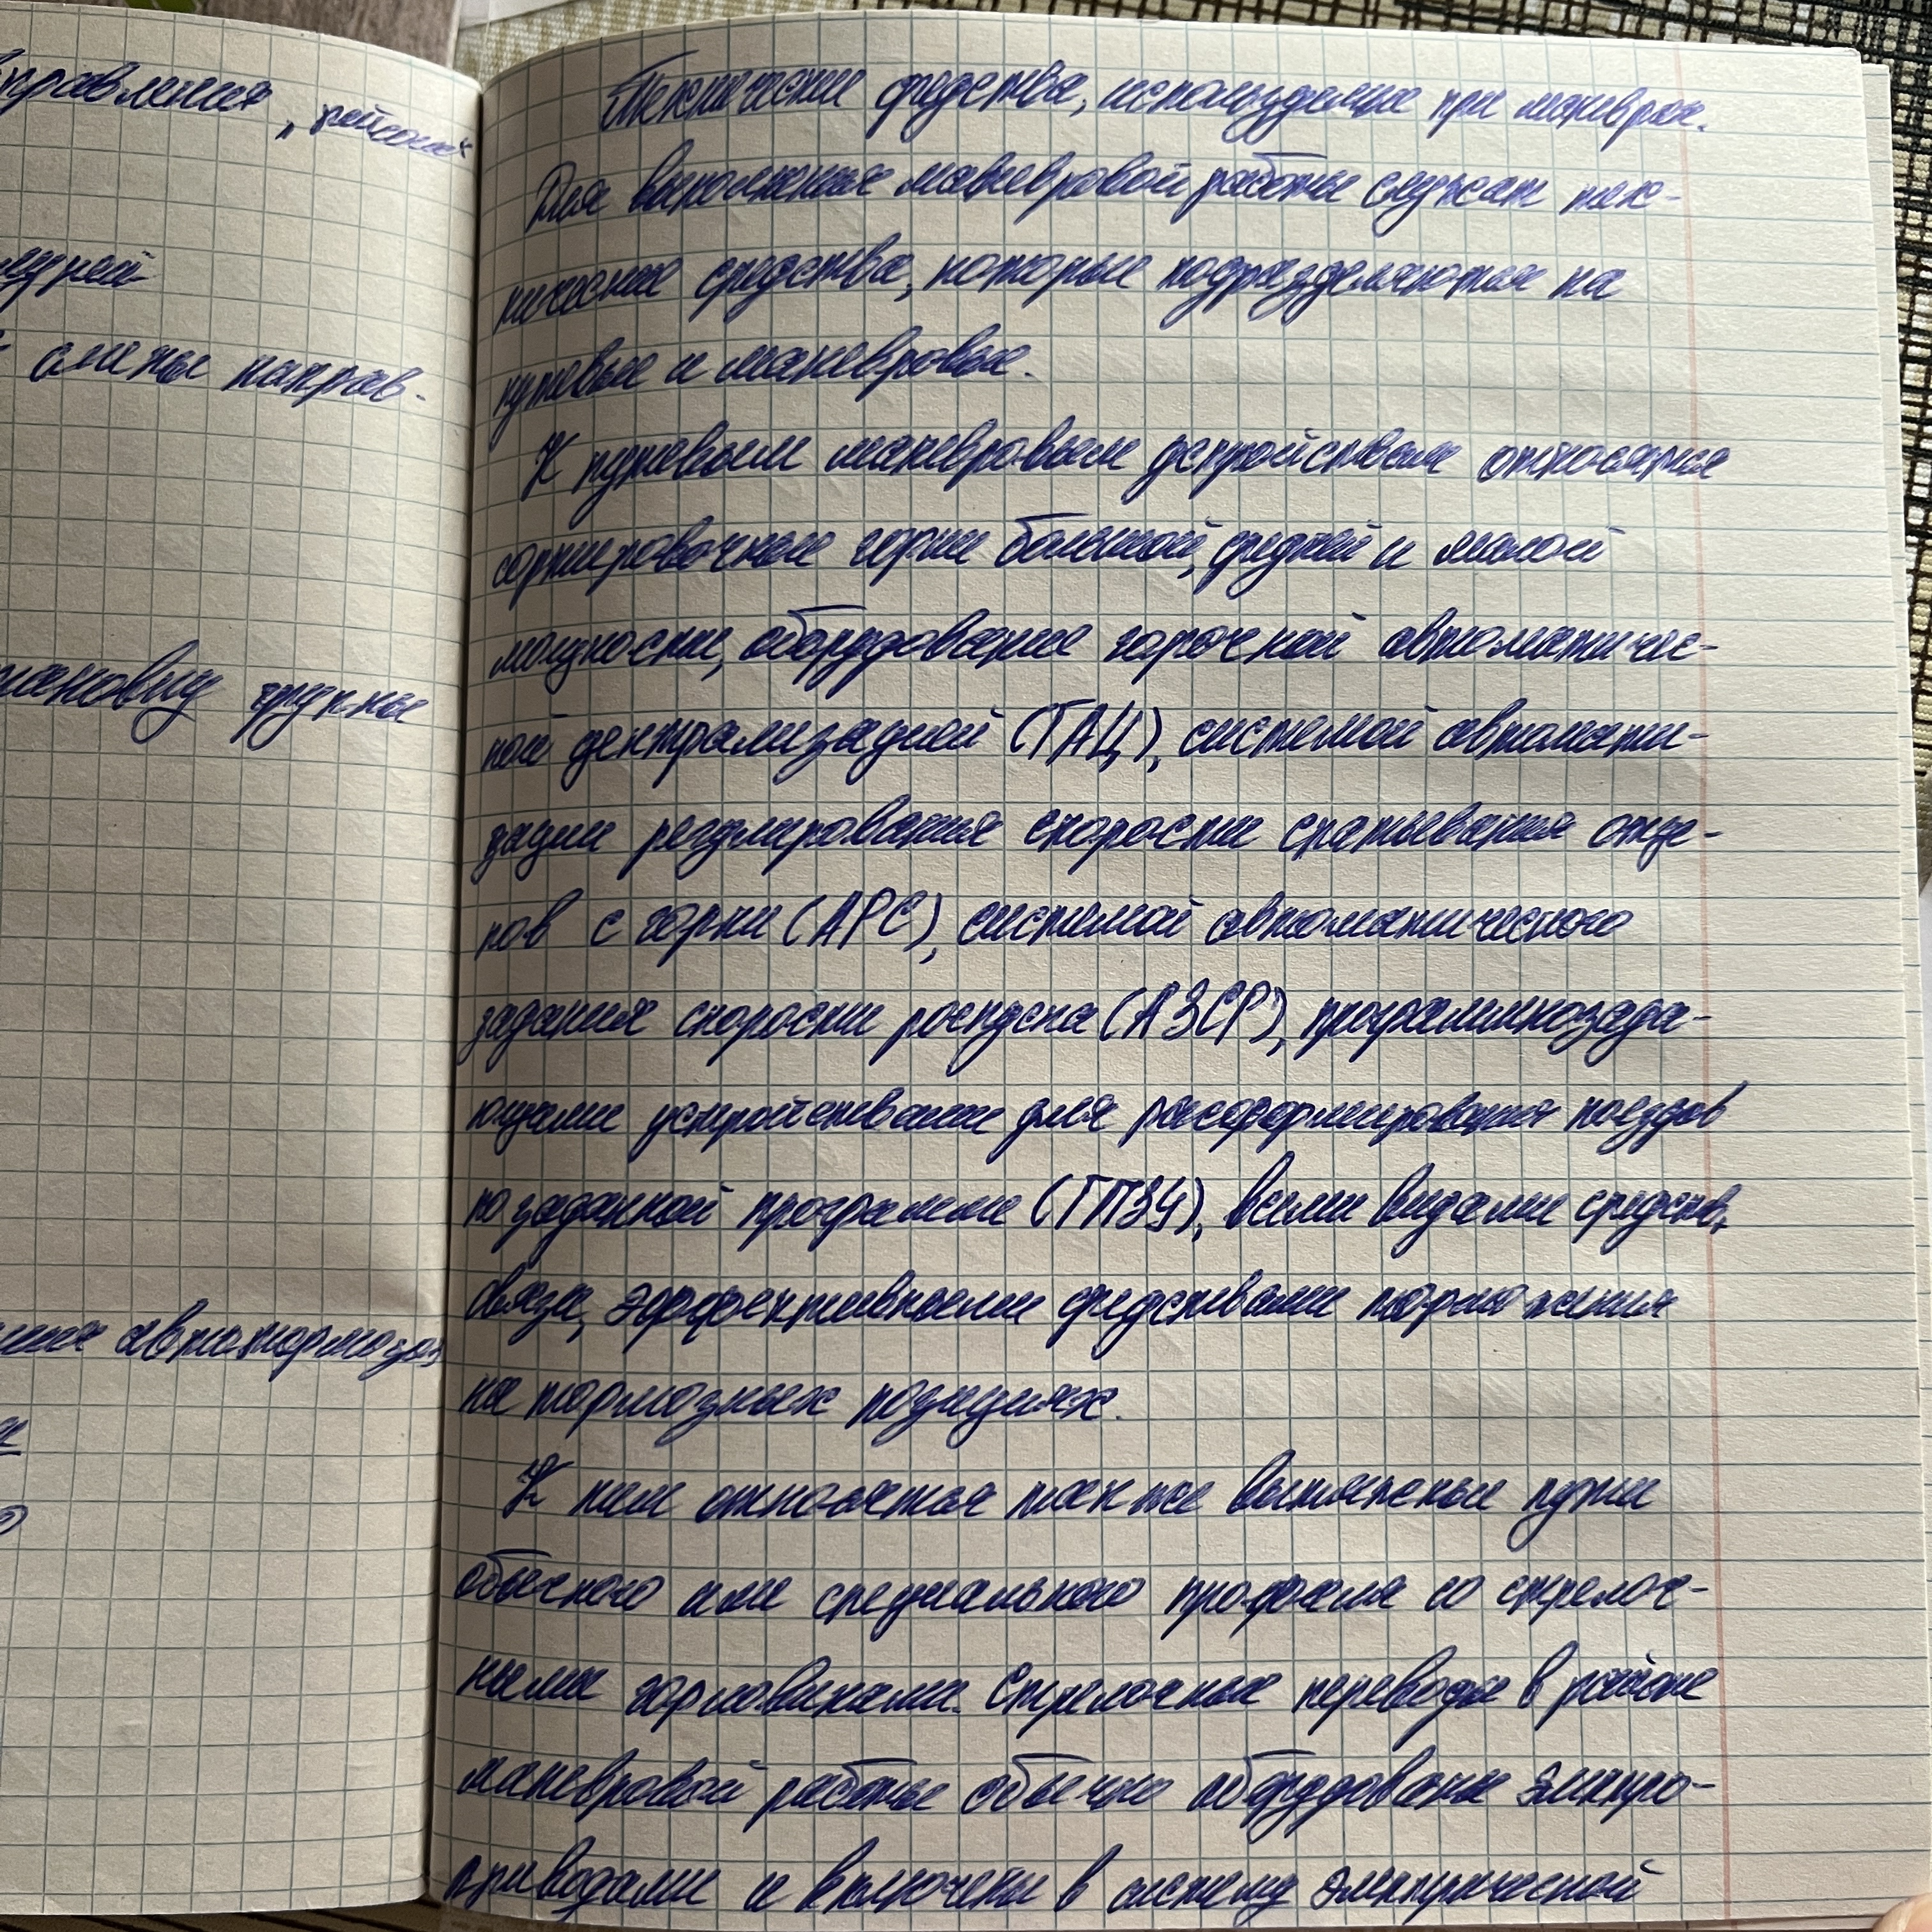 правления „рейсом“
едней
смены направ-
ановку группы
ния автотормозов
Технические средства, используемые при маневрах.
Для выполнения маневровой работы служат тех-
нические средства, которые подразделяются на
путевые и маневровые.
К путевым маневровым устройствам относятся
сортировочные горки большой, средней и малой
мощности, оборудование горочной автоматичес-
кой централизацией (ГАЦ), системой автомати-
зации регулирования скорости скатывания отце-
пов с горки (АРС), системой автоматического
задания скорости роспуска (АЗСР), программнозада-
ющими устройствами для расформирования поездов
по заданной программе (ГПЗУ), всеми видами средств,
связи, эффективными средствами торможения
на тормозных позициях.
К ним относятся также вытяжные пути
обычного или специального профиля со стрелоч-
ными горловинами. Стрелочные переводы в районе
маневровой работы обычно оборудованы электро-
приводами и включены в систему электрической